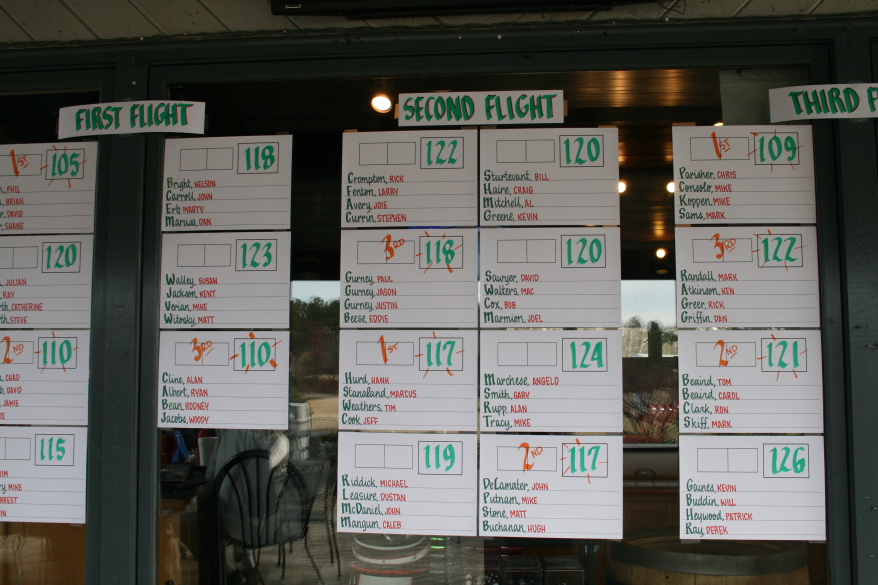 FIRST FLIGHT
1ST 105
PHIL
BRIAN
DAVID
SHANE
120
JULIAN
RAY
CATHERINE
STEVE
2ND 110
CHAD
DAVID
JAMIE
115
MIKE
118
Bright, NELSON
Carroll, JOHN
Erb, MARTY
Marusa, DAN
123
Walley, SUSAN
Jackson, KENT
Verian, MIKE
Witosky, MATT
3RD 110
Cline, ALAN
Albert, RYAN
Bean, RODNEY
Jacobs, WOODY
SECOND FLIGHT
122
Crompton, RICK
Fenton, LARRY
Avery, JOIE
Currin, STEPHEN
3RD 118
Gurney, PAUL
Gurney, JASON
Gurney, JUSTIN
Beese, EDDIE
1ST 117
Hurd, HANK
Stanaland, MARCUS
Weathers, TIM
Cook, JEFF
119
Riddick, MICHAEL
Leasure, DUSTAN
McDaniel, JOHN
Mangum, CALEB
120
Sturtevant, BILL
Haire, CRAIG
Mitchell, AL
Greene, KEVIN
120
Sawyer, DAVID
Walters, MAC
Cox, BOB
Marmion, JOEL
124
Marchese, ANGELO
Smith, GARY
Rupp, ALAN
Tracy, MIKE
2ND 117
DeCamater, JOHN
Putnam, MIKE
Stone, MATT
Buchanan, HUGH
THIRD F
1ST 109
Parisher, CHRIS
Consolo, MIKE
Koppen, MIKE
Sams, MARK
3RD 122
Randall, MARK
Atkinson, KEN
Greer, RICK
Griffin, DAN
2ND 121
Beaird, TOM
Beaird, CAROL
Clark, RON
Skiff, MARK
126
Gaines, KEVIN
Buddin, WILL
Heywood, PATRICK
Ray, DEREK